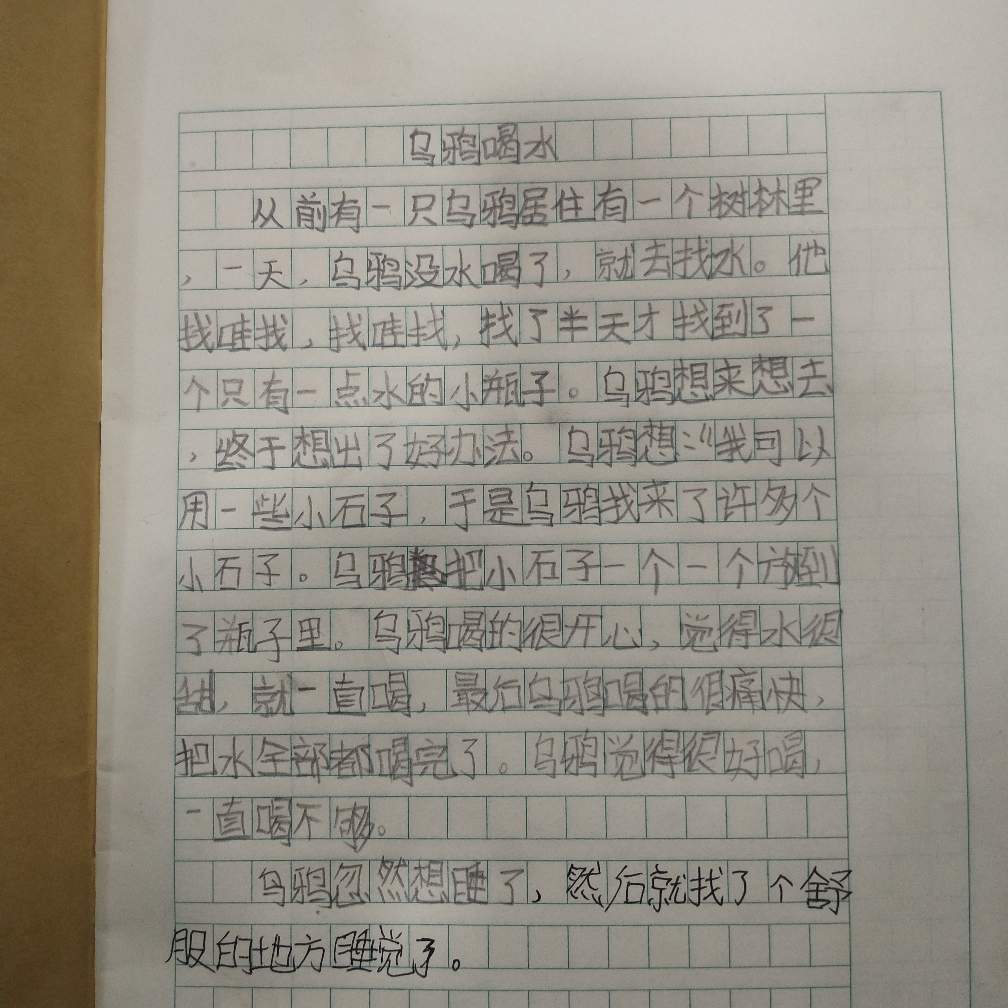 乌鸦喝水
从前有一只乌鸦居住有一个树林里
，一天，乌鸦没水喝了，就去找水。他
找哇找，找哇找，找了半天才找到了一
个只有一点水的小瓶子。乌鸦想来想去
，终于想出了好办法。乌鸦想：“我可以
用一些小石子，于是乌鸦找来了许多个
小石子。乌鸦把小石子一个一个放到
了瓶子里。乌鸦喝的很开心，觉得水很
甜，就一直喝，最后乌鸦喝的很痛快，
把水全部都喝完了。乌鸦觉得很好喝，
一直喝不够。
乌鸦忽然想睡了，然后就找了个舒
服的地方睡觉了。